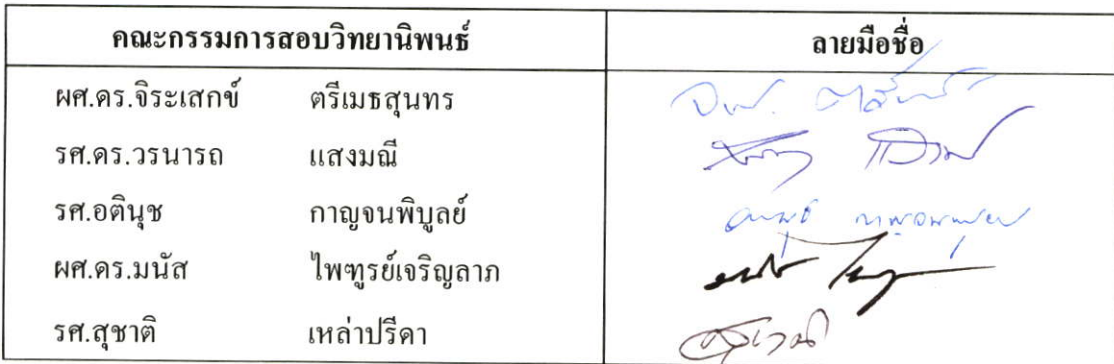 คณะกรรมการสอบวิทยานิพนธ์ ลายมือชื่อ
ผศ.ดร.จิระเสกข์ ตรีเมธสุนทร
รศ.ดร.วรนารถ แสงมณี
รศ.อตินุช กาญจนพิบูลย์
ผศ.ดร.มนัส ไพฑูรย์เจริญลาภ
รศ.สุชาติ เหล่าปรีดา